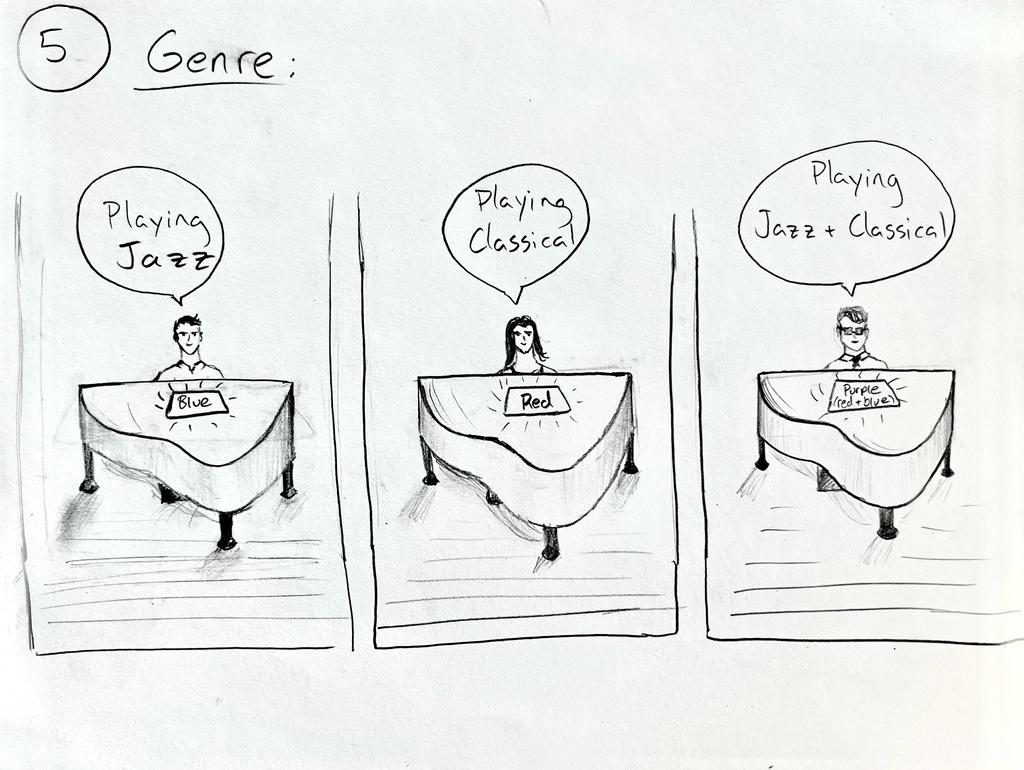 5 Genre:
Playing
Jazz
Playing
Classical
Playing
Jazz + Classical
Blue
Red
Purple
(red+blue)